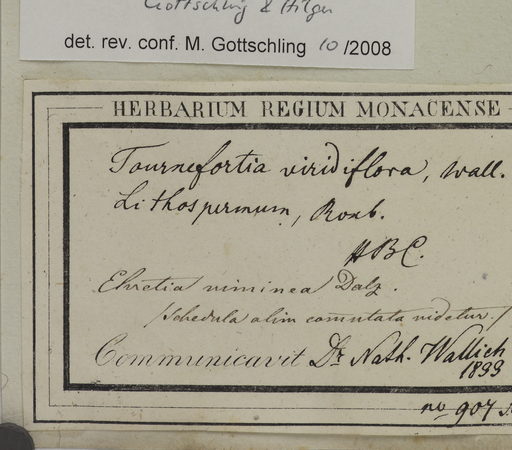 Gottschling & Hilger
det. rev. conf. M. Gottschling 10/2008
HERBARIUM REGIUM MONACENSE
Tournefortia viridiflora, Wall.
Lithospermum, Roxb.
HBC.
Ehretia viminea Dalz.
/schedula olim comutata videtur./
Communicavit Dr. Nath. Wallich
1833
no 907